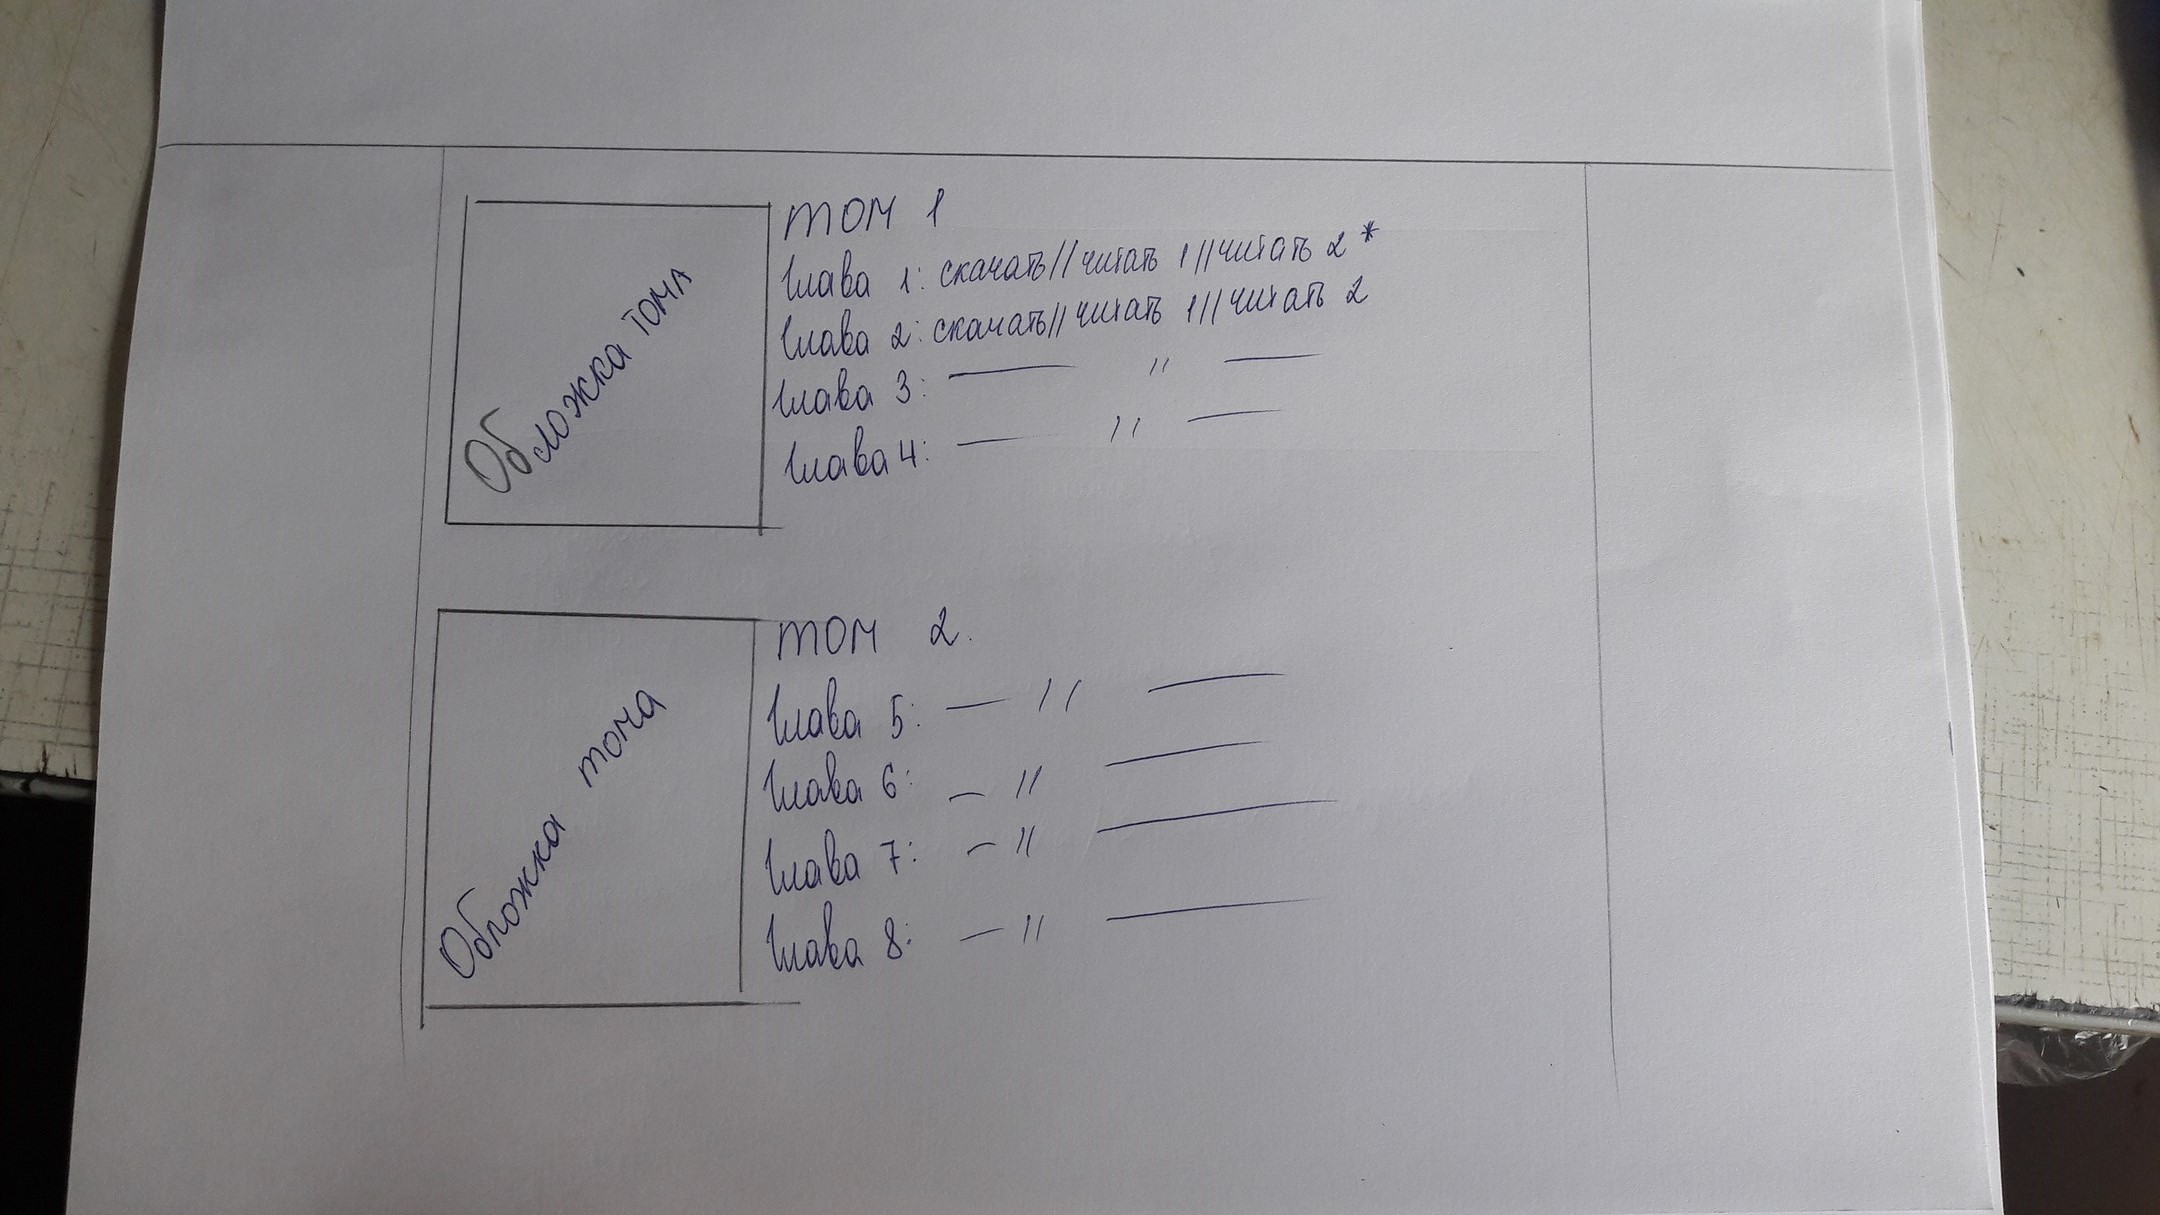 Обложка тома
том 1
Глава 1: скачать//читать 1//читать 2 *
Глава 2: скачать//читать 1//читать 2
Глава 3: — // —
Глава 4: — // —
Обложка тома
том 2.
Глава 5: — // —
Глава 6: — // —
Глава 7: — // —
Глава 8: — // —